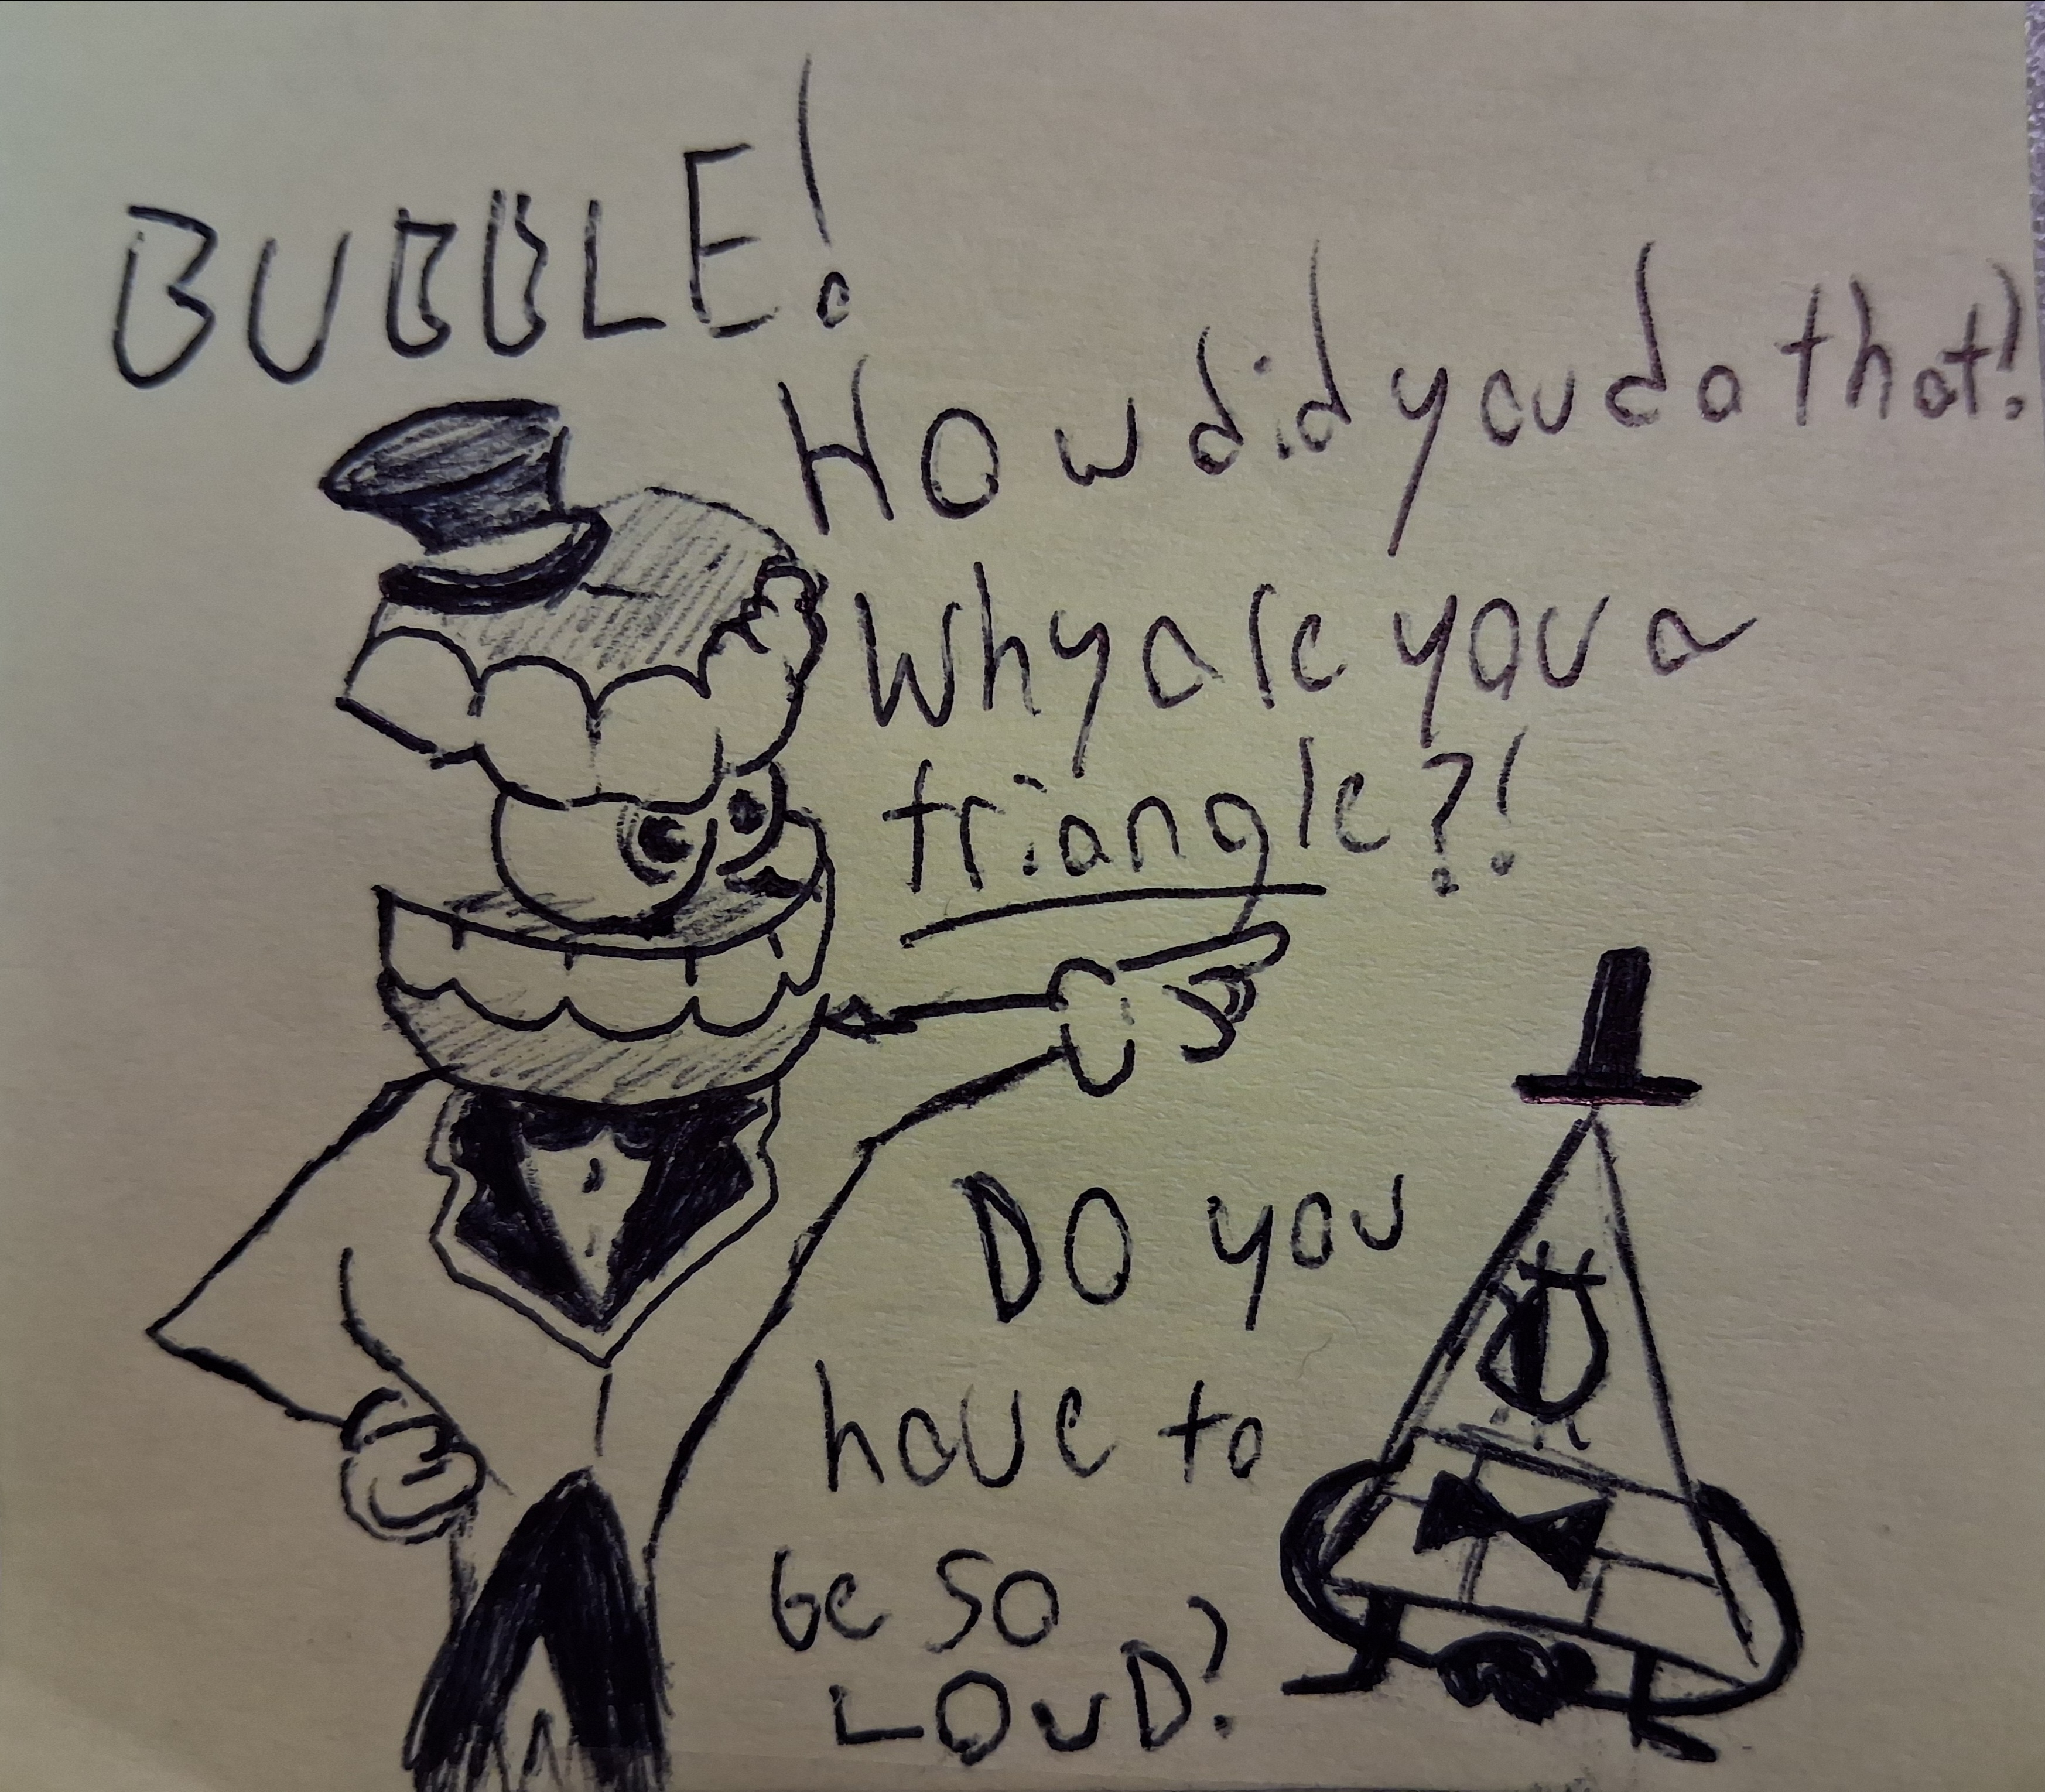 BUBBLE!
How did you do that!
Why are you a
triangle?!
DO you
have to
be so
LOUD?